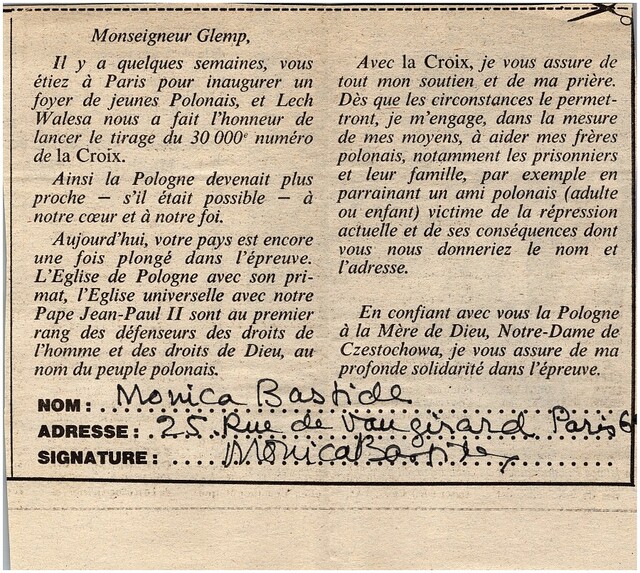 Monseigneur Glemp,
Il y a quelques semaines, vous
étiez à Paris pour inaugurer un
foyer de jeunes Polonais, et Lech
Walesa nous a fait l'honneur de
lancer le tirage du 30 000e numéro
de la Croix.
Ainsi la Pologne devenait plus
proche — s'il était possible — à
notre cœur et à notre foi.
Aujourd'hui, votre pays est encore
une fois plongé dans l'épreuve.
L'Eglise de Pologne avec son pri-
mat, l'Eglise universelle avec notre
Pape Jean-Paul II sont au premier
rang des défenseurs des droits de
l'homme et des droits de Dieu, au
nom du peuple polonais.
Avec la Croix, je vous assure de
tout mon soutien et de ma prière.
Dès que les circonstances le permet-
tront, je m'engage, dans la mesure
de mes moyens, à aider mes frères
polonais, notamment les prisonniers
et leur famille, par exemple en
parrainant un ami polonais (adulte
ou enfant) victime de la répression
actuelle et de ses conséquences dont
vous nous donneriez le nom et
l'adresse.
En confiant avec vous la Pologne
à la Mère de Dieu, Notre-Dame de
Czestochowa, je vous assure de ma
profonde solidarité dans l'épreuve.
NOM : Monica Bastide
ADRESSE : 25 Rue de Vaugirard Paris 6
SIGNATURE : Monica Bastide